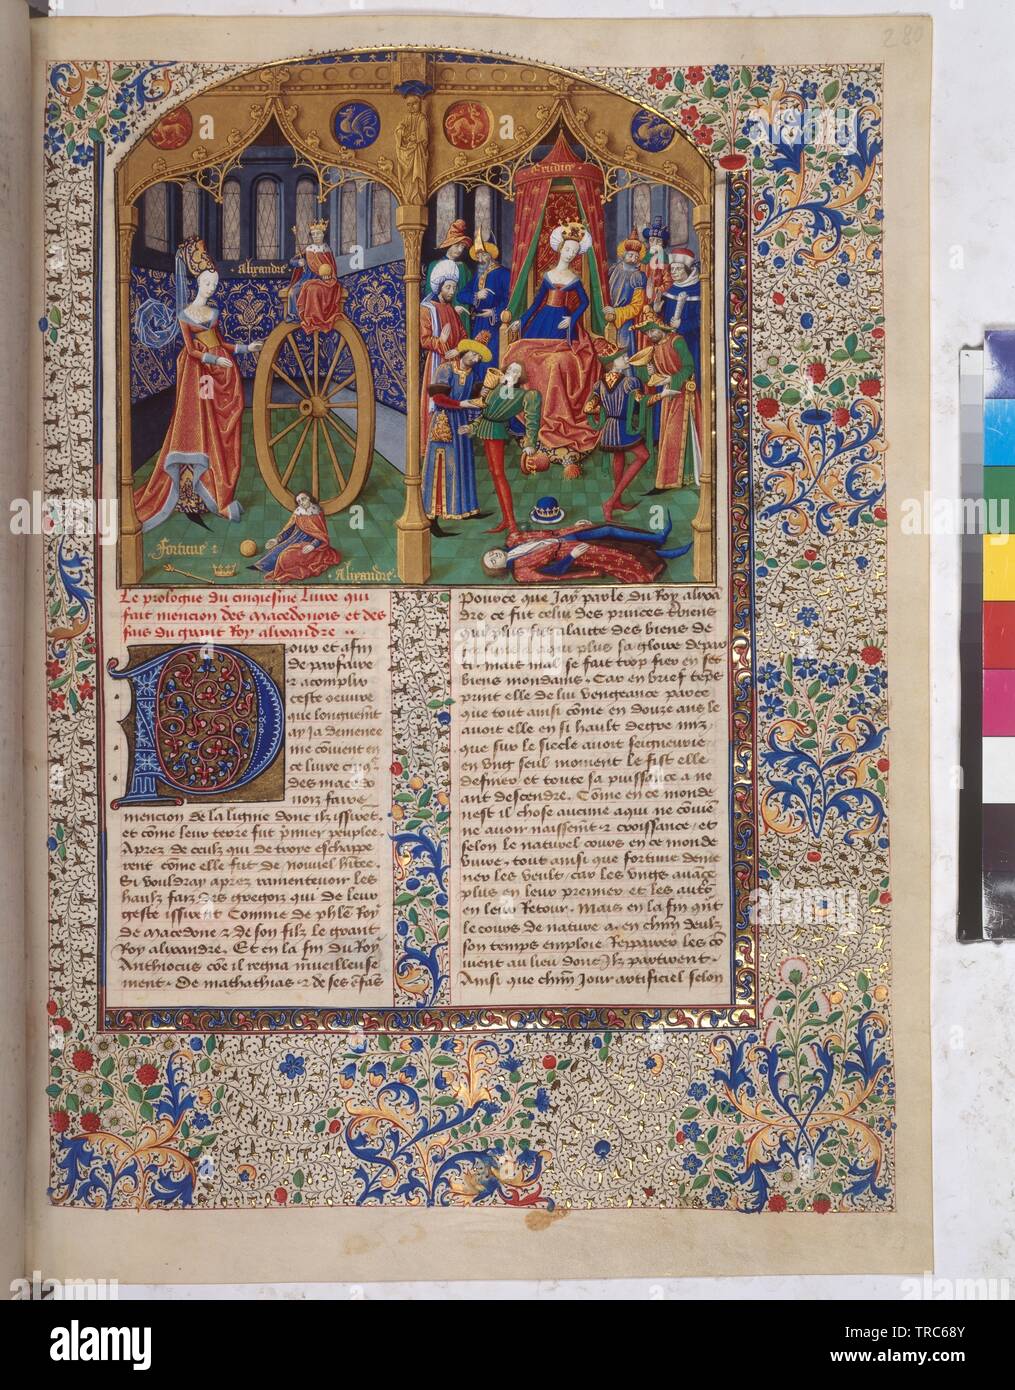 280
Alixandre
Fortune :
Alixandre
Le prologue du cinqiesme Livre qui
fait mencion des macedonois et des
fais du grant Roy alixandre
Pour et afin
de parfaire
et acomplir
ceste oeuvre
que longuemt
ay Ja demenee
me covient en
ce livre cinqe
des macedo
nois faire
mencion de la lignie dont ilz issirent
et come leur terre fut pmier peuplee
Aprez de ceulz qui de troye eschappe
rent come elle fut de nouvel
Si vouldray aprez ramentevoir les
haulz faiz des gregois qui de leur
geste issirent Comme de phle Roy
de macedone et de son filz le grant
Roy alixandre. Et en la fin du Roy
Anthiocus coe il regna mveilleuse
ment. De mathathias et de ses efas
Pource que Jay parle du Roy alixa
dre ce fut celui des princes terriens
qui plus fut des biens de
fortune a qui plus sa gloire depar
ti. mais mal se fait trop fier en ses
biens mondains. Car en brief teps
print elle de lui vengeance parce
que tout ainsi come en douze ans le
avoit elle en si hault degre mis
que sur le siecle avoit seigneurie.
en vng seul moment le fist elle
desiner et toute sa puissance a ne
ant descendre. Come en ce monde
nest il chose aucune a qui ne coviē
ne avoir naissemt et croissance. et
selon le naturel cours en ce monde
vivre. tout ainsi que fortune deme
ner les veult. car les vngs avace
plus en leur premier et les autres
en leur retour. Mais en la fin qnt
le cours de nature a en chun deulz
son temps emploie Reppairer les co
vient au lieu dont Ilz partirent.
Ainsi que chun Jour artificiel selon
alamy
Image ID: TRC68Y
www.alamy.com